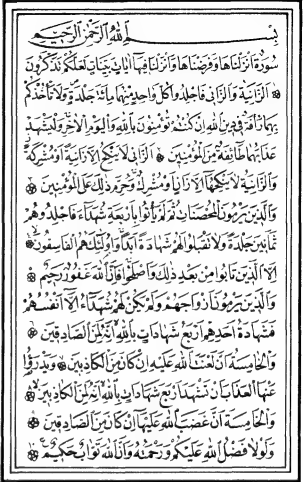 بسم الله الرحمن الرحيم
سورة انزلناها وفرضناها وانزلنا فيها ايات بينات لعلكم تذكرون
الزانية والزاني فاجلدوا كل واحد منهما مائة جلدة ولا تاخذكم
بهما رافة في دين الله ان كنتم تؤمنون بالله واليوم الاخر وليشهد
عذابهما طائفة من المؤمنين الزاني لا ينكح الا زانية او مشركة
والزانية لا ينكحها الا زان او مشرك وحرم ذلك على المؤمنين
والذين يرمون المحصنات ثم لم ياتوا باربعة شهداء فاجلدوهم
ثمانين جلدة ولا تقبلوا لهم شهادة ابدا واولئك هم الفاسقون
الا الذين تابوا من بعد ذلك واصلحوا فان الله غفور رحيم
والذين يرمون ازواجهم ولم يكن لهم شهداء الا انفسهم
فشهادة احدهم اربع شهادات بالله انه لمن الصادقين
والخامسة ان لعنت الله عليه ان كان من الكاذبين ويدرؤا
عنها العذاب ان تشهد اربع شهادات بالله انه لمن الكاذبين
والخامسة ان غضب الله عليها ان كان من الصادقين
ولولا فضل الله عليكم ورحمته وان الله تواب حكيم